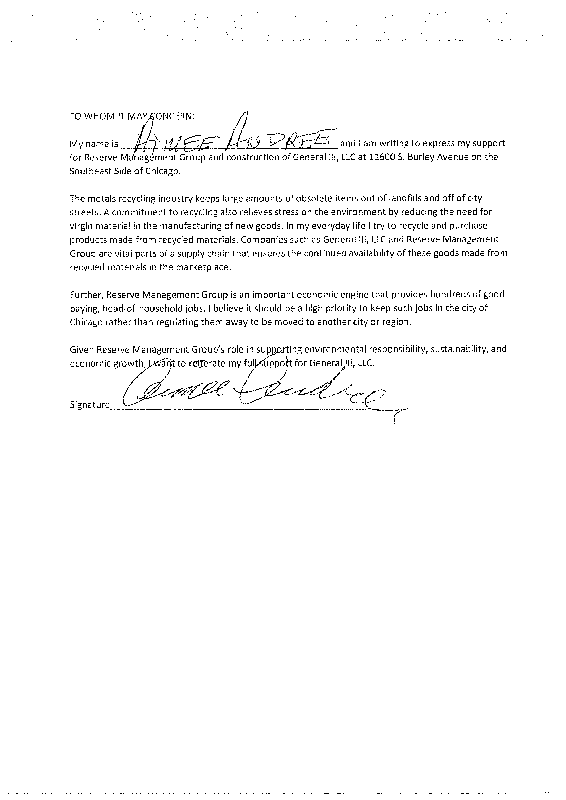 TO WHOM IT MAY CONCERN:
My name is AIMEE ANDREE and I am writing to express my support
for Reserve Management Group and construction of General III, LLC at 11600 S. Burley Avenue on the
Southeast Side of Chicago.
The metals recycling industry keeps large amounts of obsolete items out of landfills and off of city
streets. A commitment to recycling also relieves stress on the environment by reducing the need for
virgin material in the manufacturing of new goods. In my everyday life I try to recycle and purchase
products made from recycled materials. Companies such as General III, LLC and Reserve Management
Group are vital parts of a supply chain that ensures the continued availability of these goods made from
recycled materials in the marketplace.
Further, Reserve Management Group is an important economic engine that provides hundreds of good
paying, head of household jobs. I believe it should be a high priority to keep such jobs in the city of
Chicago rather than regulating them away to be moved to another city or region.
Given Reserve Management Group's role in supporting environmental responsibility, sustainability, and
economic growth, I want to reiterate my full support for General III, LLC.
Signature Aimee Andree